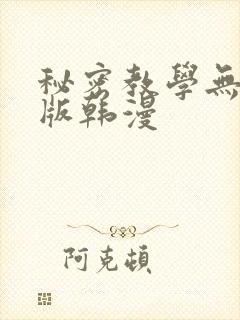 秘密教學無
版韩漫
阿克頓